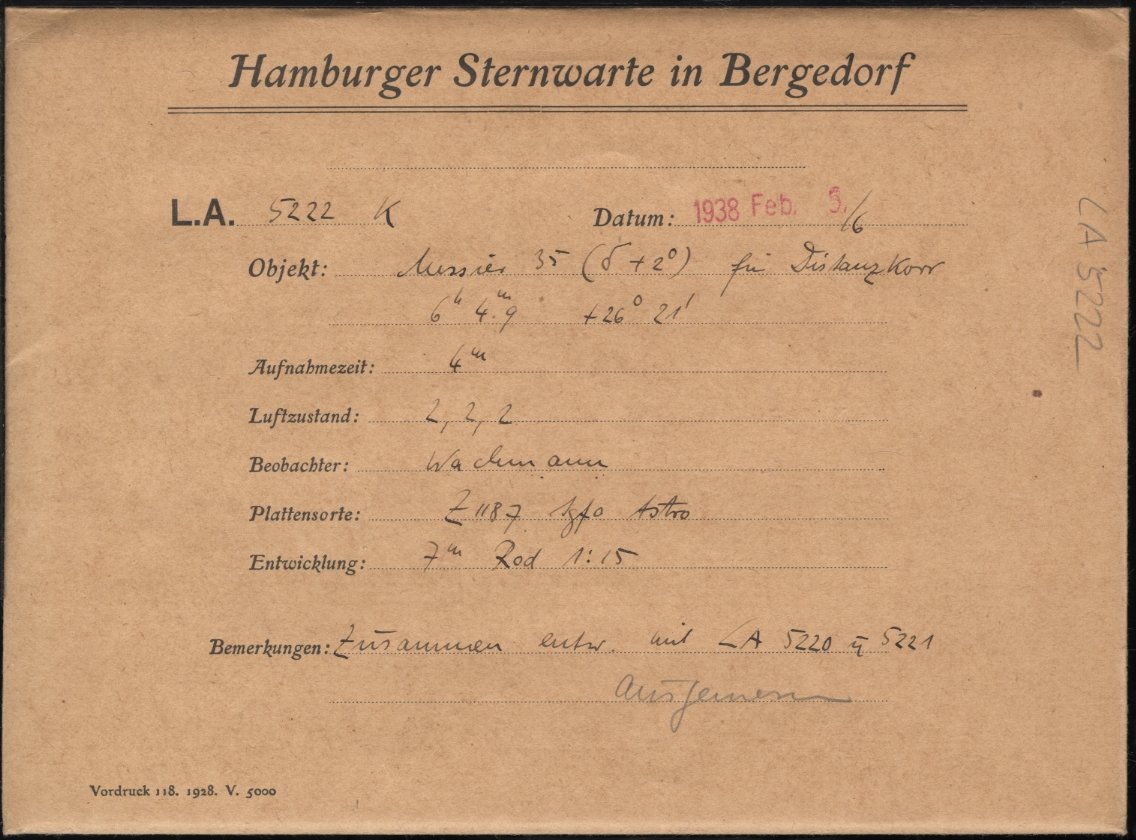 Hamburger Sternwarte in Bergedorf
L.A. 5222 K Datum: 1938 Feb. 5./6
Objekt: Messier 35 (δ +2°) für Distanzkorr
6ʰ 4ᵐ.9 +26° 21'
Aufnahmezeit: 4ᵐ
Luftzustand: 2, 2, 2
Beobachter: Wachmann
Plattensorte: Z 1187 Agfa Astro
Entwicklung: 7ᵐ Rod 1:15
Bemerkungen: Zusammen entw. mit LA 5220 u 5221
ausgemessen
Vordruck 118. 1928. V. 5000
LA 5222